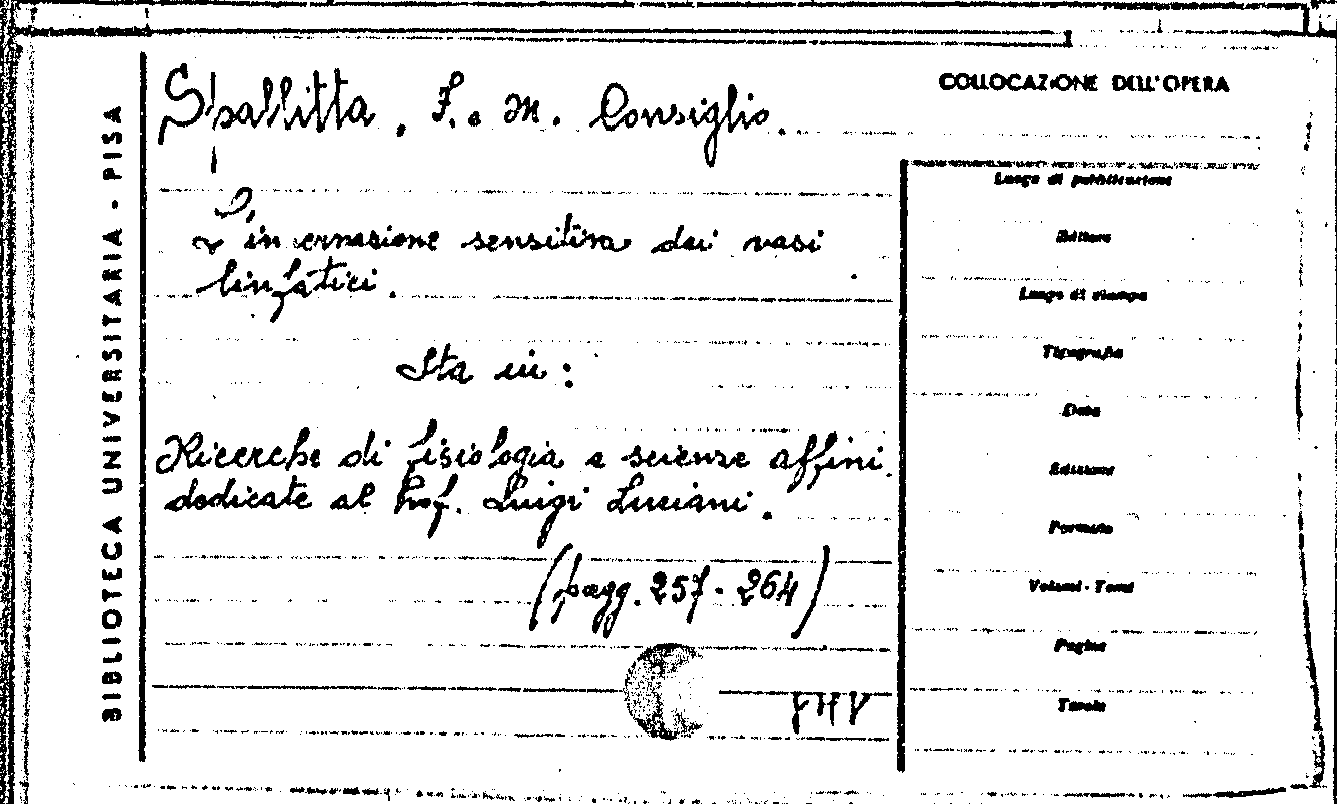 BIBLIOTECA UNIVERSITARIA - PISA
COLLOCAZIONE DELL'OPERA
Spallitta, F. e M. Consiglio.
L'innervazione sensitiva dei vasi
linfatici.
Sta in:
Ricerche di fisiologia e scienze affini
dedicate al Prof. Luigi Luciani.
(pagg. 257-264)
Luogo di pubblicazione
Editore
Luogo di stampa
Tipografia
Data
Edizione
Formato
Volumi - Tomi
Pagine
Tavole